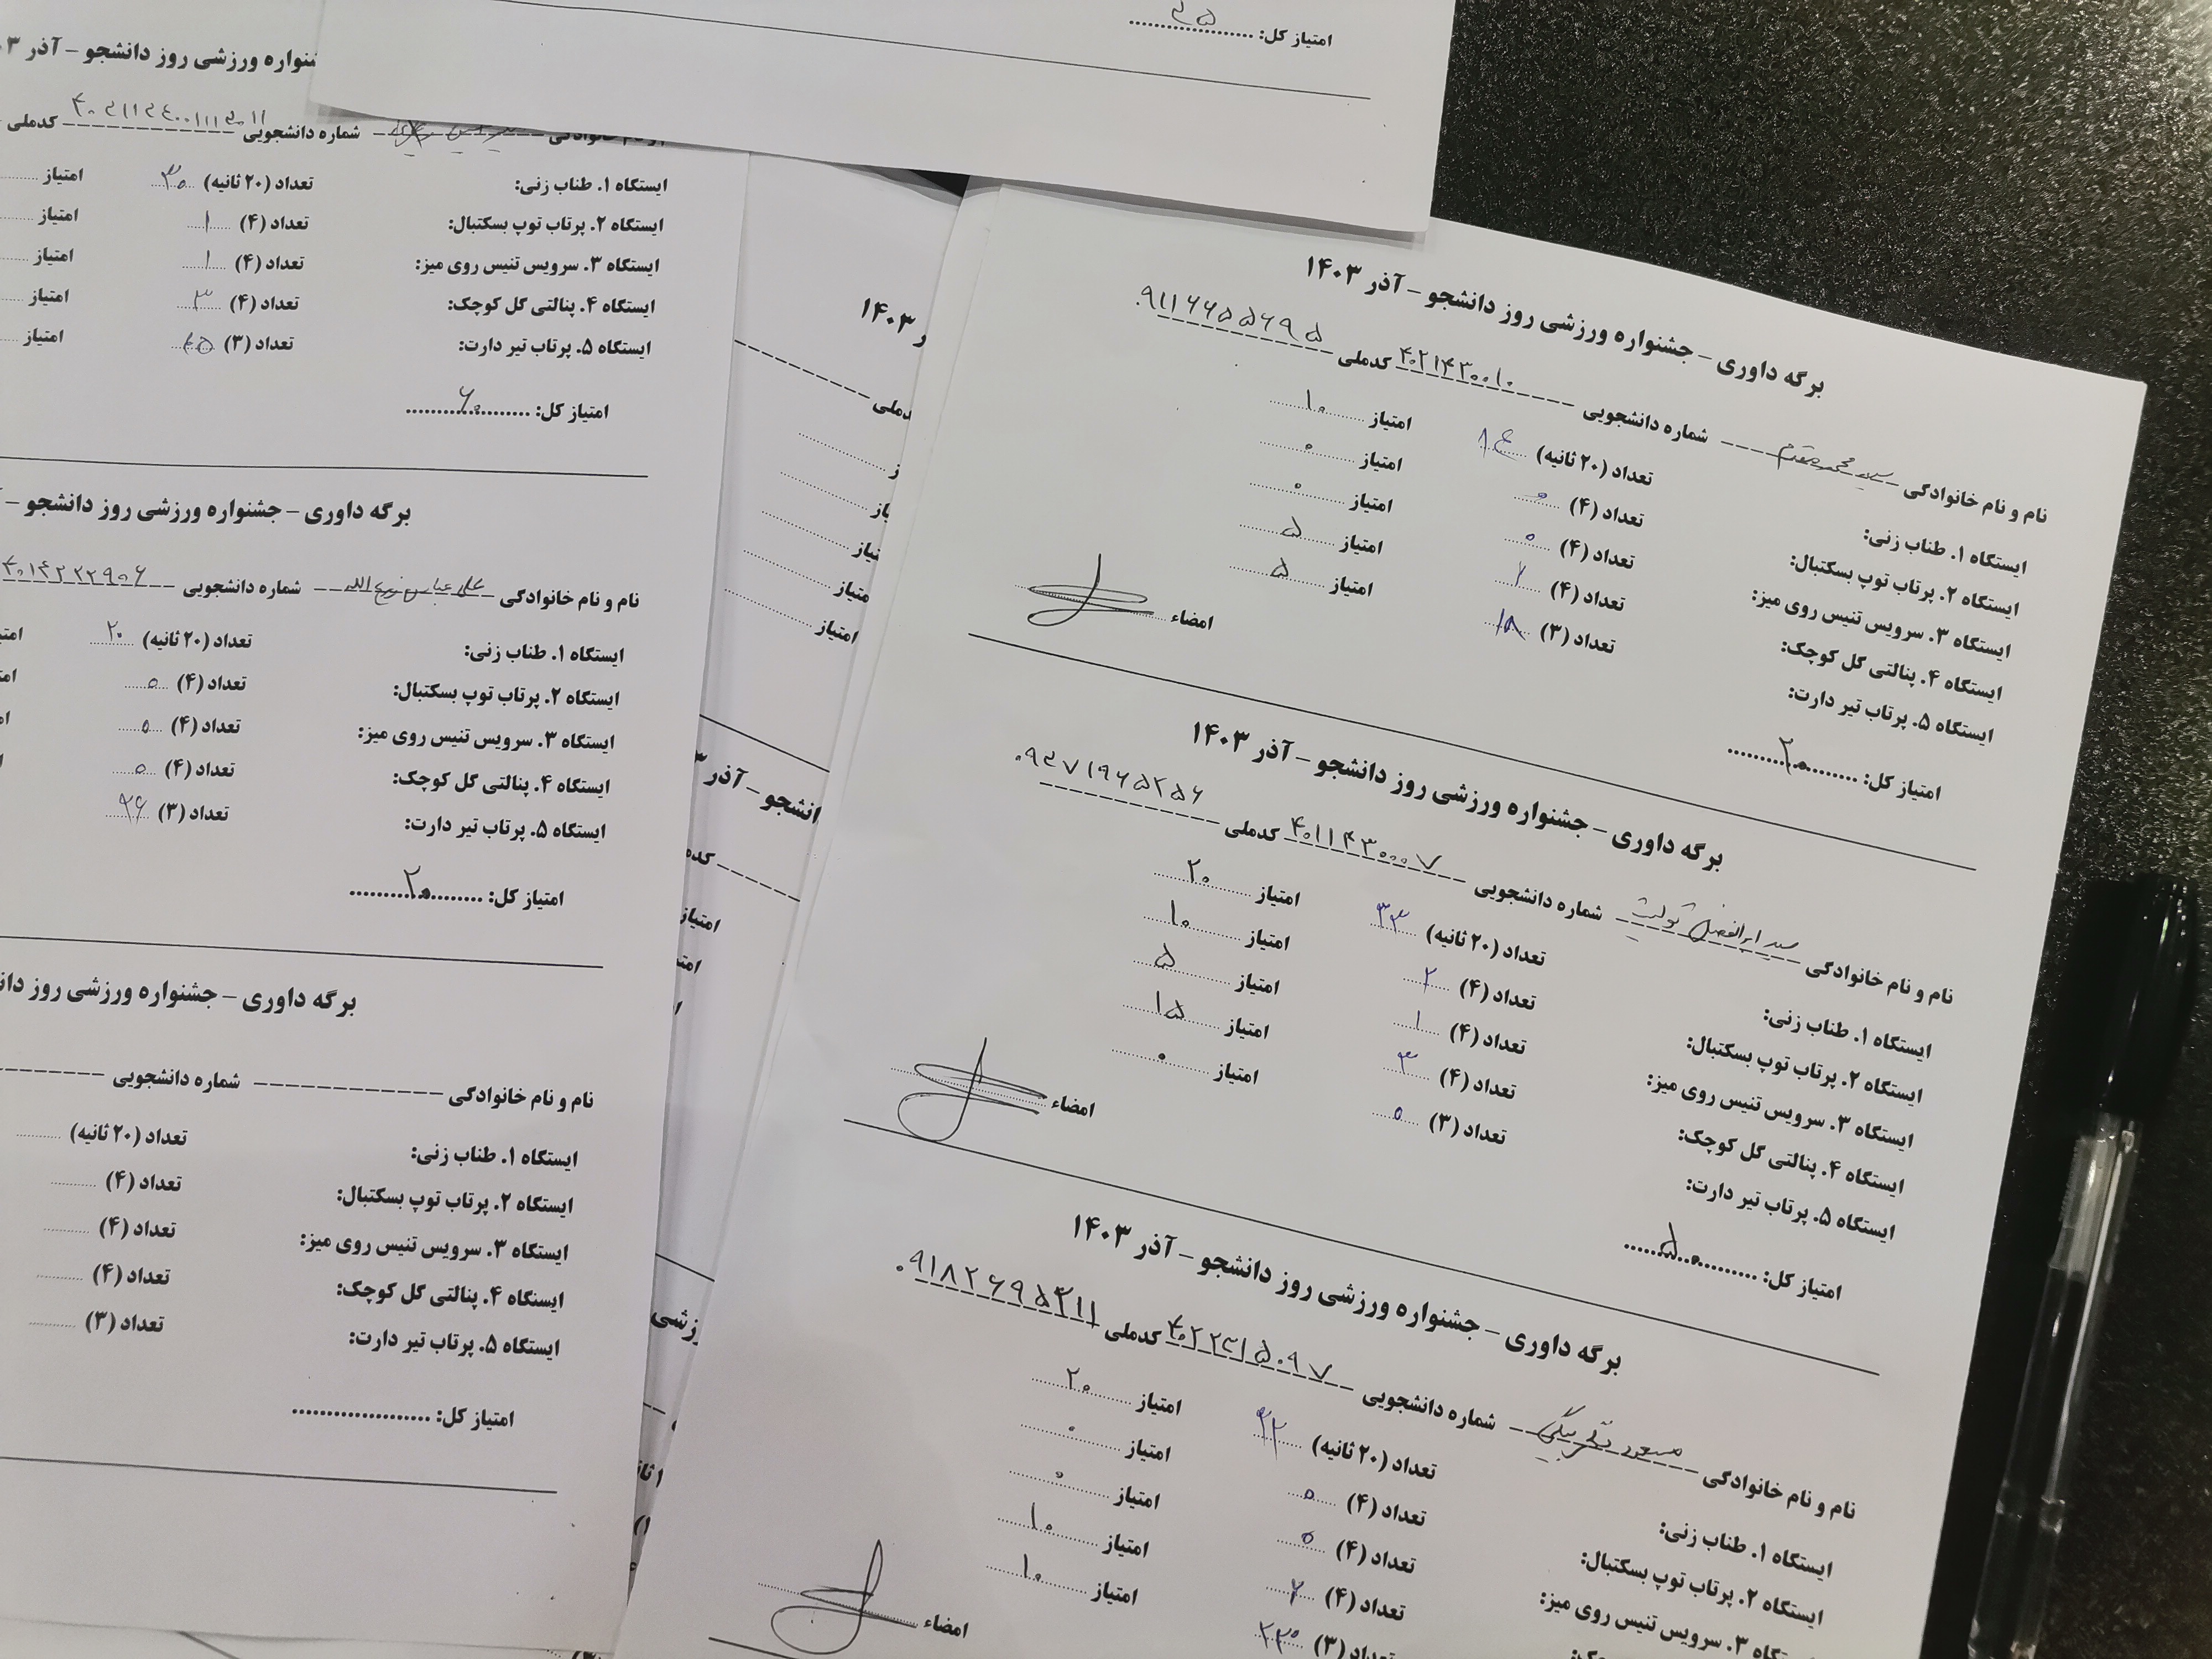 امتیاز کل: ۴۵
برگه داوری – جشنواره ورزشی روز دانشجو – آذر ۱۴۰۳
نام و نام خانوادگی سید محمد مقدم شماره دانشجویی ۴۰۲۱۴۳۰۰۱۰ کدملی ۰۹۱۱۶۶۵۵۶۹۵
ایستگاه ۱. طناب زنی: تعداد (۲۰ ثانیه) امتیاز ۱۰
ایستگاه ۲. پرتاب توپ بسکتبال: تعداد (۴) ۰ امتیاز ۰
ایستگاه ۳. سرویس تنیس روی میز: تعداد (۴) ۰ امتیاز ۰
ایستگاه ۴. پنالتی گل کوچک: تعداد (۴) امتیاز ۵
ایستگاه ۵. پرتاب تیر دارت: تعداد (۳) ۱۸ امتیاز ۵
امتیاز کل: ۲۰ امضاء
برگه داوری – جشنواره ورزشی روز دانشجو – آذر ۱۴۰۳
نام و نام خانوادگی سید ابوالفضل تولیت شماره دانشجویی ۴۰۱۱۴۳۰۰۰۷ کدملی ۰۹۳۷۱۹۶۵۲۵۶
ایستگاه ۱. طناب زنی: تعداد (۲۰ ثانیه) ۳۳ امتیاز ۲۰
ایستگاه ۲. پرتاب توپ بسکتبال: تعداد (۴) ۲ امتیاز ۱۰
ایستگاه ۳. سرویس تنیس روی میز: تعداد (۴) ۱ امتیاز ۵
ایستگاه ۴. پنالتی گل کوچک: تعداد (۴) ۳ امتیاز ۱۵
ایستگاه ۵. پرتاب تیر دارت: تعداد (۳) ۰ امتیاز ۰
امتیاز کل: ۵۰ امضاء
برگه داوری – جشنواره ورزشی روز دانشجو – آذر ۱۴۰۳
نام و نام خانوادگی مسعود شماره دانشجویی ۴۰۲۲۳۱۵۰۹۷ کدملی ۰۹۱۸۲۶۹۵۳۱۱
ایستگاه ۱. طناب زنی: تعداد (۲۰ ثانیه) امتیاز ۲۰
ایستگاه ۲. پرتاب توپ بسکتبال: تعداد (۴) ۰ امتیاز ۰
ایستگاه ۳. سرویس تنیس روی میز: تعداد (۴) ۰ امتیاز ۰
تعداد (۴) ۲ امتیاز ۱۰
تعداد (۳) امتیاز ۱۰
امضاء
ورزشی روز دانشجو – آذر
شماره دانشجویی کدملی
ایستگاه ۱. طناب زنی: تعداد (۲۰ ثانیه) ۳۰ امتیاز
ایستگاه ۲. پرتاب توپ بسکتبال: تعداد (۴) ۱ امتیاز
ایستگاه ۳. سرویس تنیس روی میز: تعداد (۴) ۱ امتیاز
ایستگاه ۴. پنالتی گل کوچک: تعداد (۴) ۳ امتیاز
ایستگاه ۵. پرتاب تیر دارت: تعداد (۳) امتیاز
امتیاز کل: ۶۰
برگه داوری – جشنواره ورزشی روز دانشجو –
نام و نام خانوادگی علی عباس شماره دانشجویی ۴۰۱۴۲۲۲۹۰۶
ایستگاه ۱. طناب زنی: تعداد (۲۰ ثانیه) ۲۰
ایستگاه ۲. پرتاب توپ بسکتبال: تعداد (۴) ۰
ایستگاه ۳. سرویس تنیس روی میز: تعداد (۴) ۰
ایستگاه ۴. پنالتی گل کوچک: تعداد (۴) ۰
ایستگاه ۵. پرتاب تیر دارت: تعداد (۳)
امتیاز کل: ۲۰
برگه داوری – جشنواره ورزشی روز
نام و نام خانوادگی شماره دانشجویی
ایستگاه ۱. طناب زنی: تعداد (۲۰ ثانیه)
ایستگاه ۲. پرتاب توپ بسکتبال: تعداد (۴)
ایستگاه ۳. سرویس تنیس روی میز: تعداد (۴)
ایستگاه ۴. پنالتی گل کوچک: تعداد (۴)
ایستگاه ۵. پرتاب تیر دارت: تعداد (۳)
امتیاز کل:
۱۴۰۳
امتیاز
امتیاز